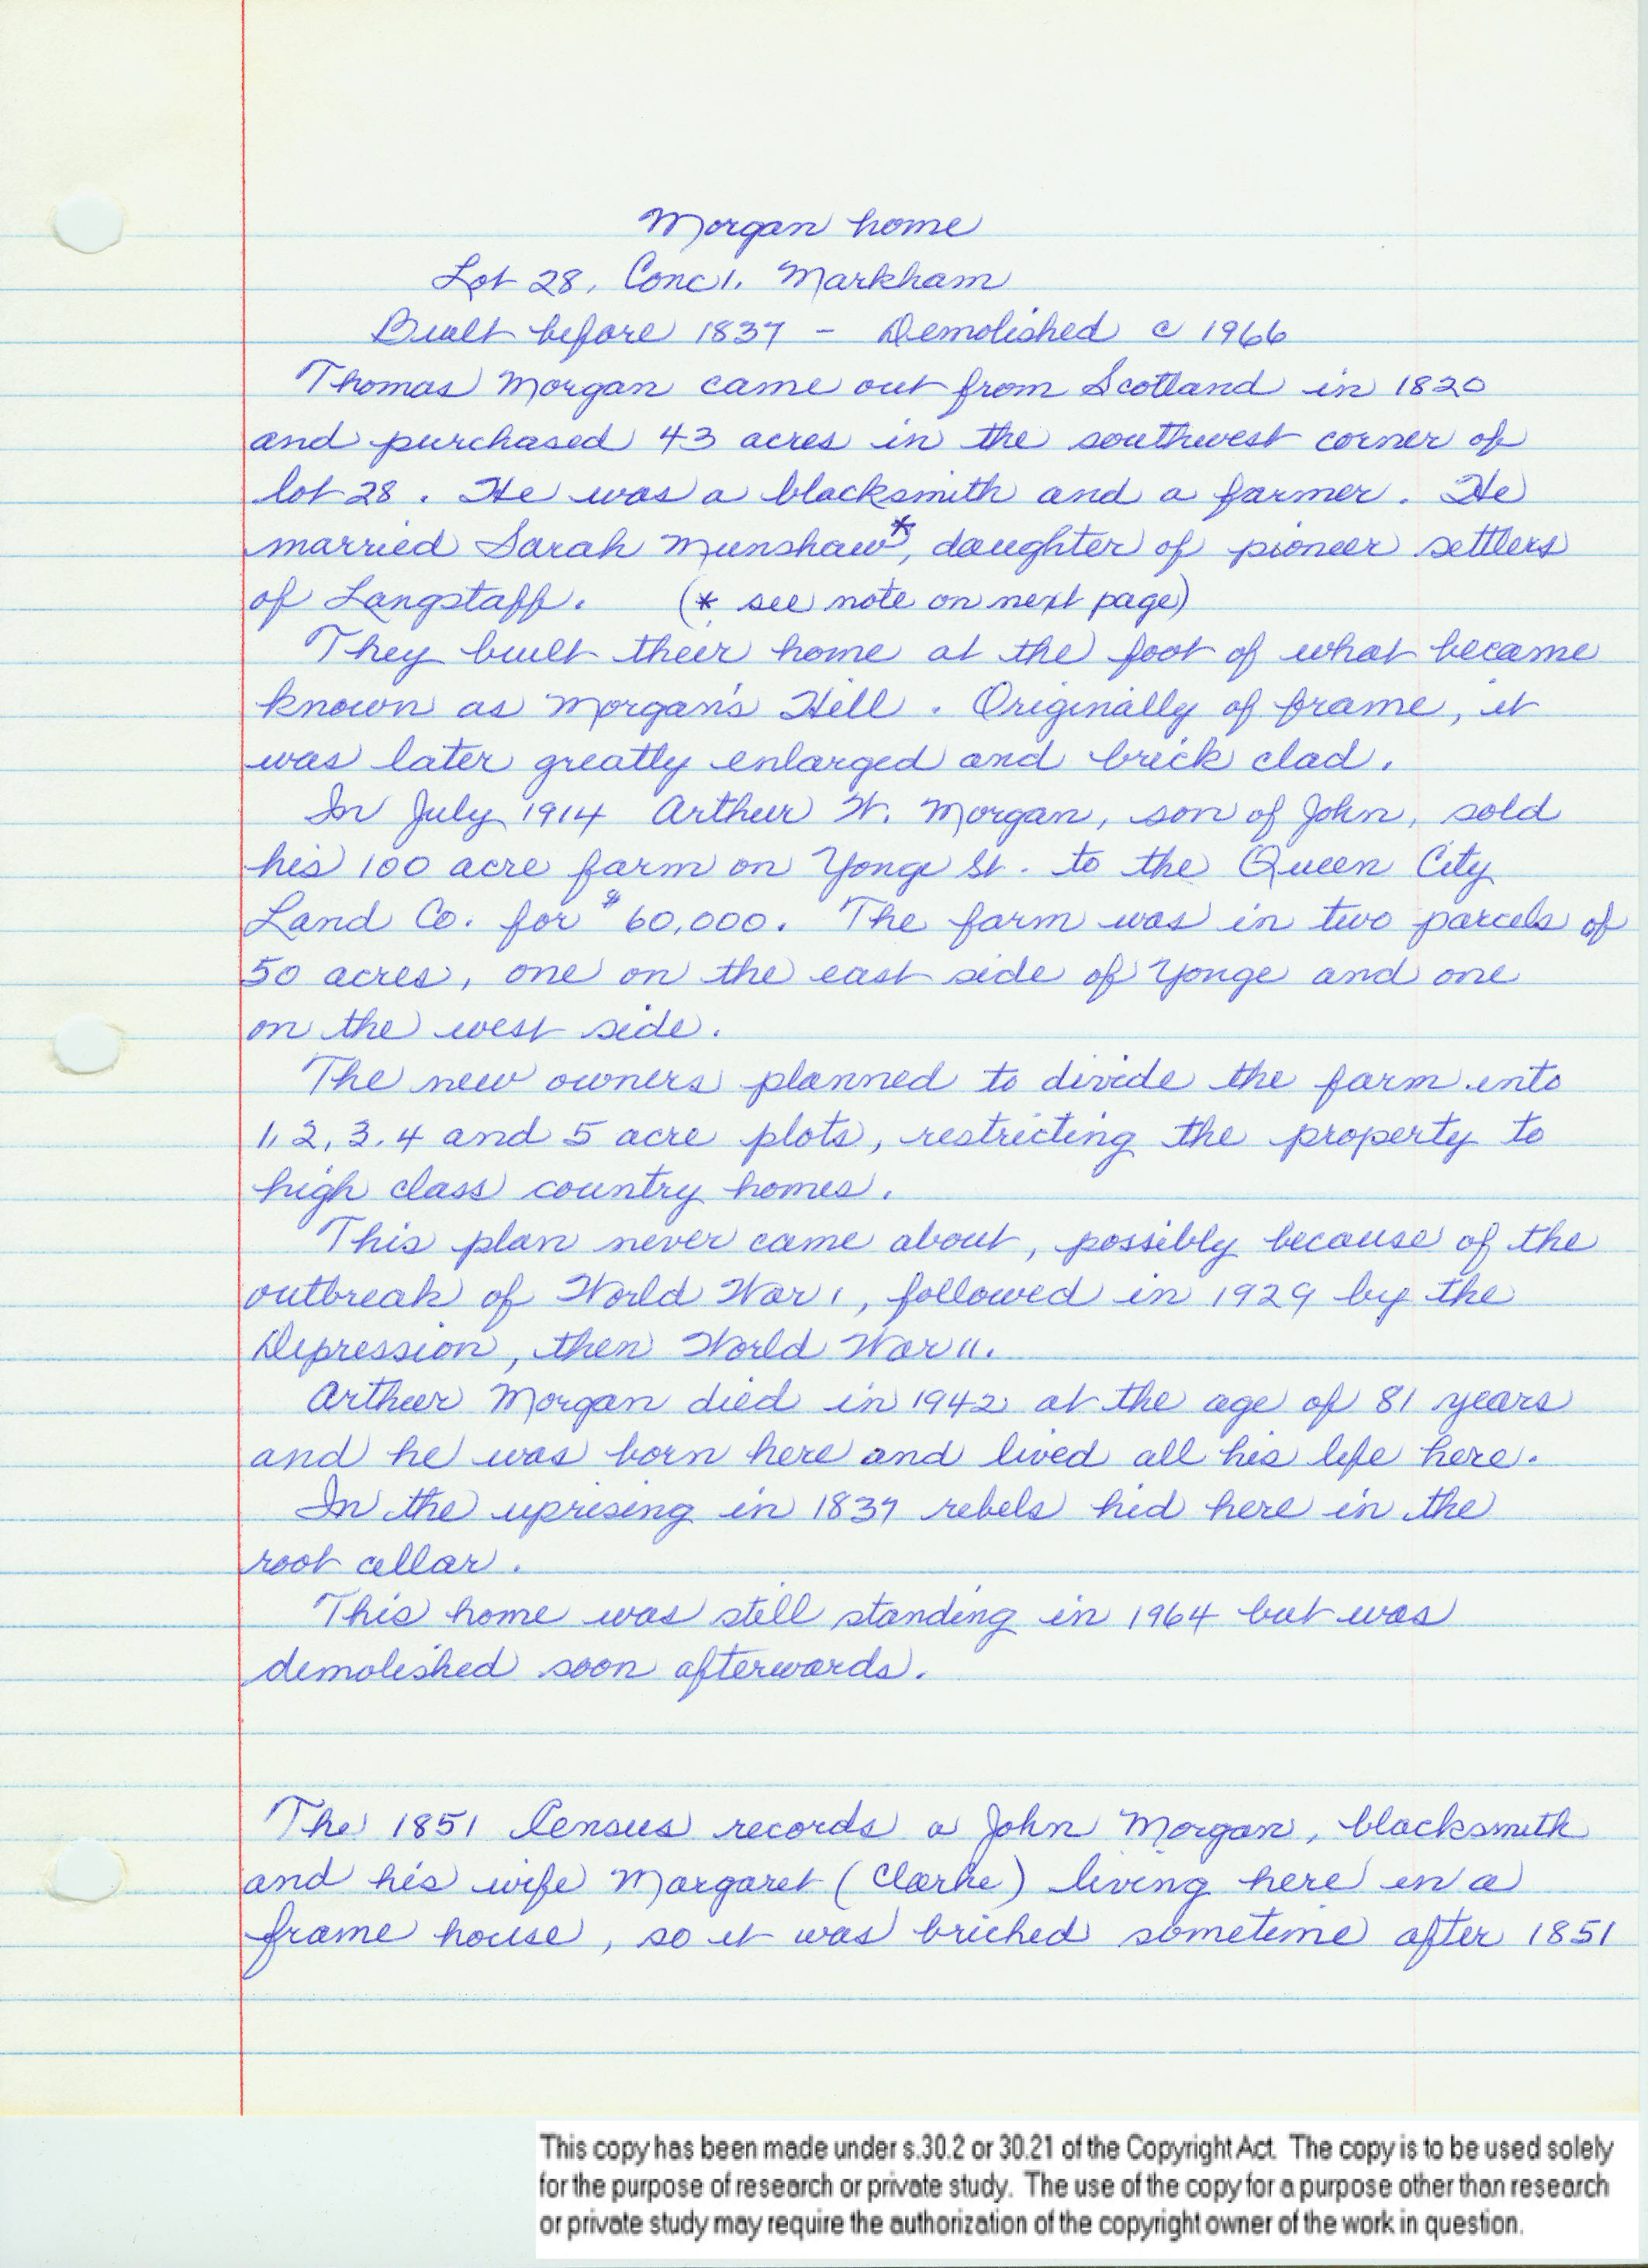 Morgan home
Lot 28, Conc 1. Markham
Built before 1837 - Demolished c 1966
Thomas Morgan came out from Scotland in 1820
and purchased 43 acres in the southwest corner of
lot 28. He was a blacksmith and a farmer. He
married Sarah Munshaw*, daughter of pioneer settlers
of Langstaff. (* see note on next page)
They built their home at the foot of what became
known as Morgan's Hill. Originally of frame, it
was later greatly enlarged and brick clad.
In July 1914 Arthur W. Morgan, son of John, sold
his 100 acre farm on Yonge St. to the Queen City
Land Co. for $60,000. The farm was in two parcels of
50 acres, one on the east side of Yonge and one
on the west side.
The new owners planned to divide the farm into
1, 2, 3, 4 and 5 acre plots, restricting the property to
high class country homes.
This plan never came about, possibly because of the
outbreak of World War 1, followed in 1929 by the
Depression, then World War 11.
Arthur Morgan died in 1942 at the age of 81 years
and he was born here and lived all his life here.
In the uprising in 1837 rebels hid here in the
root cellar.
This home was still standing in 1964 but was
demolished soon afterwards.
The 1851 Census records a John Morgan, blacksmith
and his wife Margaret (Clarke) living here in a
frame house, so it was bricked sometime after 1851
This copy has been made under s.30.2 or 30.21 of the Copyright Act. The copy is to be used solely
for the purpose of research or private study. The use of the copy for a purpose other than research
or private study may require the authorization of the copyright owner of the work in question.